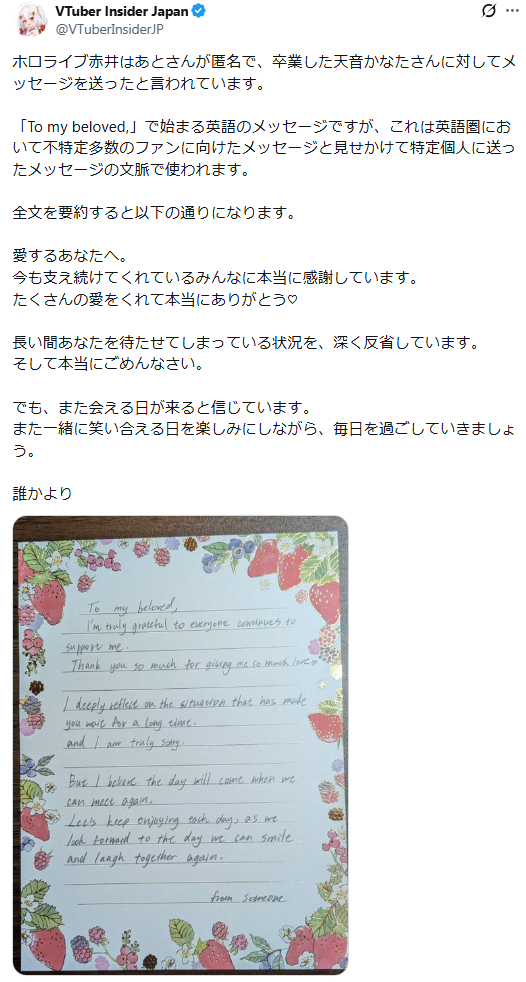 VTuber Insider Japan
@VTuberInsiderJP
ホロライブ赤井はあとさんが匿名で、卒業した天音かなたさんに対してメ
ッセージを送ったと言われています。
「To my beloved,」で始まる英語のメッセージですが、これは英語圏にお
いて不特定多数のファンに向けたメッセージと見せかけて特定個人に送っ
たメッセージの文脈で使われます。
全文を要約すると以下の通りになります。
愛するあなたへ。
今も支え続けてくれているみんなに本当に感謝しています。
たくさんの愛をくれて本当にありがとう♡
長い間あなたを待たせてしまっている状況を、深く反省しています。
そして本当にごめんなさい。
でも、また会える日が来ると信じています。
また一緒に笑い合える日を楽しみにしながら、毎日を過ごしていきましょ
う。
誰かより
To my beloved,
I'm truly grateful to everyone continues to
support me.
Thank you so much for giving me so much love♡
I deeply reflect on the situation that has made
you wait for a long time.
and I am truly sorry.
But I believe the day will come when we
can meet again.
Let's keep enjoying each day, as we
look forward to the day we can smile
and laugh together again.
from someone